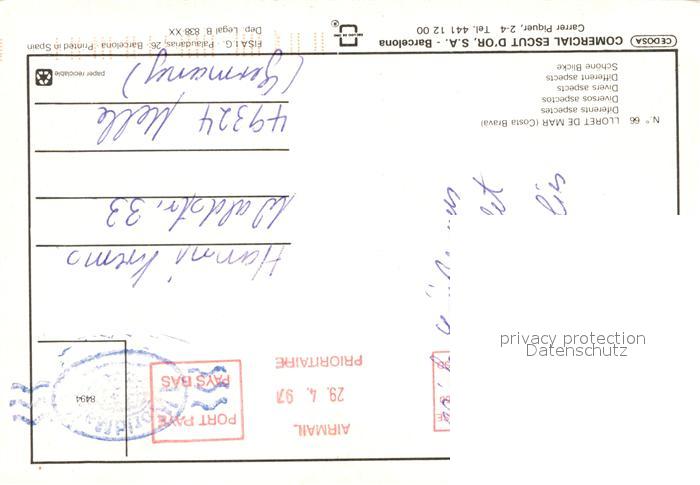 AIRMAIL
29. 4. 97
PRIORITAIRE
PORT PAYÉ
PAYS BAS
8494
Hanni
Waldstr. 33
49324 Melle
(Germany)
N.° 66 LLORET DE MAR (Costa Brava)
Diferents aspectes
Diversos aspectos
Divers aspects
Different aspects
Schöne Blicke
paper reciclable
CEDOSA COMERCIAL ESCUT D'OR, S.A. - Barcelona
Carrer Piquer, 2-4 Tel. 441 12 00
FISA I.G. - Palaudarias, 26 - Barcelona - Printed in Spain
Dep. Legal B. 838 XX
privacy protection
Datenschutz